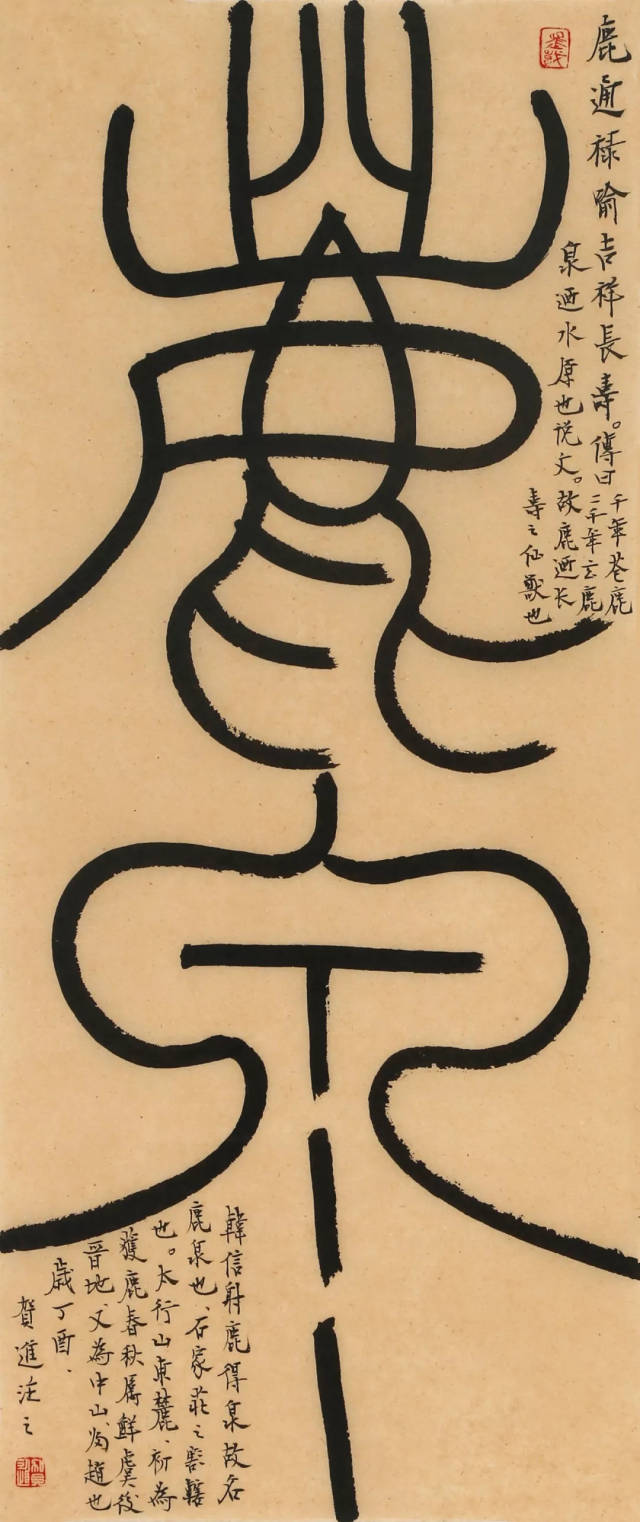 鹿泉
鹿通禄喻吉祥長壽。傳曰
千年苍鹿
二千年玄鹿
泉迺水原也说文。故鹿迺长
壽之仙獸也
韓信射鹿得泉故名
鹿泉也、石家莊之割轄
也。太行山東麓、祈為
獲鹿春秋屬鮮虞後
晋地、又為中山、尚趙也
歲丁酉、
賀進注之